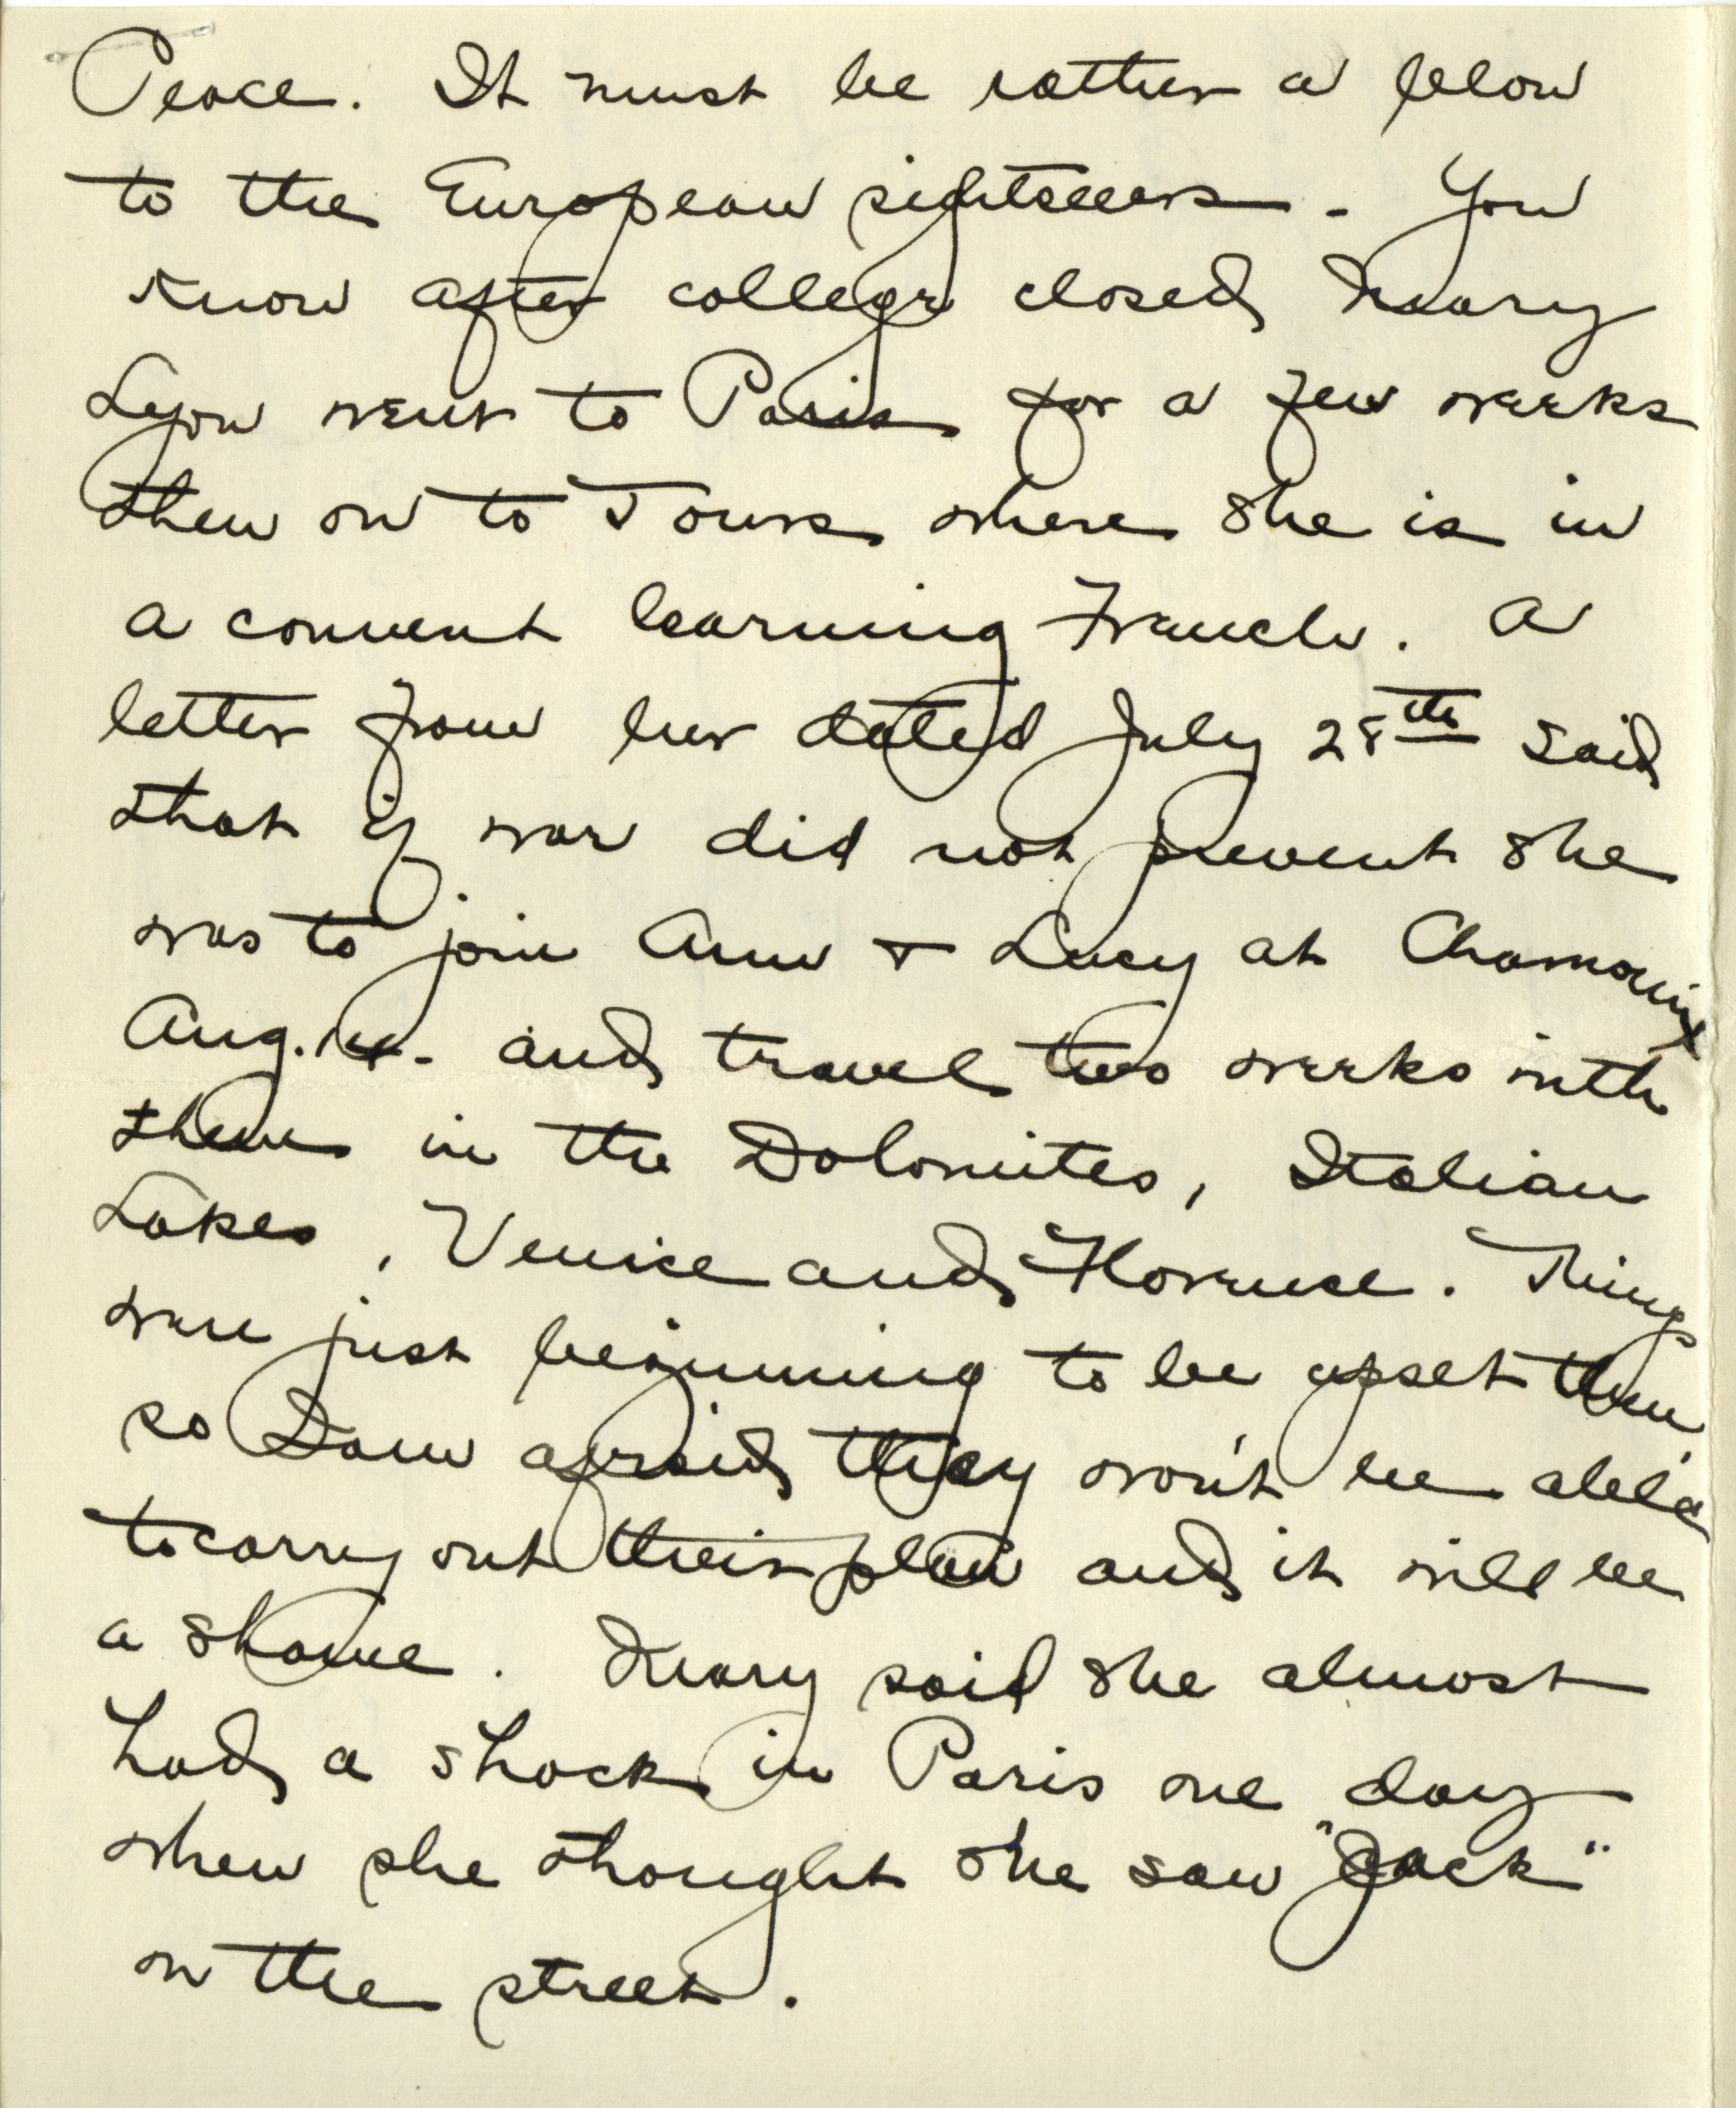 Peace. It must be rather a blow
to the European sightseers. - You
know after college closed Mary
Lyon went to Paris for a few weeks
then on to Tours where she is in
a convent learning French. A
letter from her dated July 28th said
that if war did not prevent she
was to join Ann + Lucy at Chamounix
Aug. 14 - and travel two weeks with
them in the Dolomites, Italian
Lakes, Venice and Florence. Things
were just beginning to be upset then
so I am afraid they won't be able
to carry out their plan and it will be
a shame. Mary said she almost
had a shock in Paris one day
when she thought she saw "Jack"
on the street.